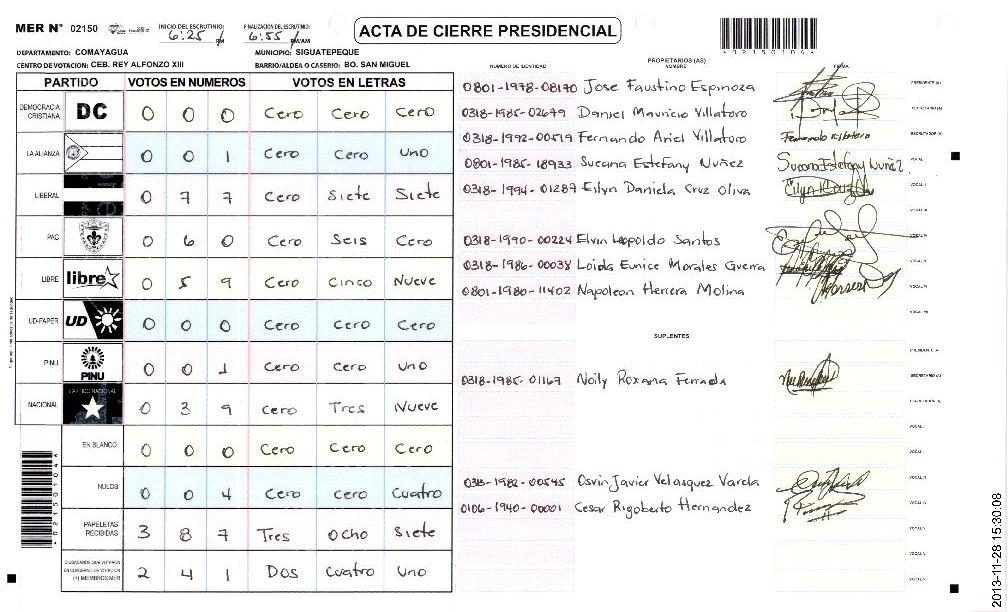 MER N° 02150 INICIO DEL ESCRUTINIO: 6:25 PM FINALIZACION DEL ESCRUTINIO: 6:55 PM/AM
ACTA DE CIERRE PRESIDENCIAL
DEPARTAMENTO: COMAYAGUA MUNICIPIO: SIGUATEPEQUE
CENTRO DE VOTACION: CEB. REY ALFONZO XIII BARRIO/ALDEA O CASERIO: BO. SAN MIGUEL
PARTIDO VOTOS EN NUMEROS VOTOS EN LETRAS
DEMOCRACIA CRISTIANA DC 0 0 0 Cero Cero Cero
LA ALIANZA 0 0 1 Cero Cero Uno
LIBERAL 0 7 7 Cero Siete Siete
PAC 0 6 0 Cero Seis Cero
LIBRE libre 0 5 9 Cero Cinco Nueve
UD-FAPER UD 0 0 0 Cero Cero Cero
PINU PINU 0 0 1 Cero Cero Uno
NACIONAL PARTIDO NACIONAL 0 3 9 Cero Tres Nueve
EN BLANCO 0 0 0 Cero Cero Cero
NULOS 0 0 4 Cero Cero Cuatro
PAPELETAS RECIBIDAS 3 8 7 Tres Ocho Siete
CIUDADANOS QUE VOTARON EN CUADERNO DE VOTACION (+) MIEMBROS MER 2 4 1 Dos Cuatro Uno
PROPIETARIOS (AS)
NUMERO DE IDENTIDAD NOMBRE FIRMA
0801-1978-08170 Jose Faustino Espinoza PRESIDENTE (A)
0318-1985-02679 Daniel Mauricio Villatoro SECRETARIO (A)
0318-1992-00519 Fernando Ariel Villatoro
0801-1985-18933 Sucana Estefany Nuñez Sucana Estefany Nuñez VOCAL I
0318-1994-01289 Eilyn Daniela Cruz Oliva VOCAL II
VOCAL III
0318-1990-00224 Elvin Leopoldo Santos VOCAL IV
0318-1986-00038 Loida Eunice Morales Guerra VOCAL V
0801-1980-11402 Napoleon Herrera Molina VOCAL VI
VOCAL VII
SUPLENTES
PRESIDENTE (A)
0318-1985-01167 Noily Roxana Ferrada SECRETARIO (A)
VOCAL I
VOCAL II
0318-1982-00545 Osvin Javier Velasquez Varela VOCAL III
0106-1940-00001 Cesar Rigoberto Hernandez VOCAL IV
VOCAL V
VOCAL VI
VOCAL VII
2013-11-28 15:30:08